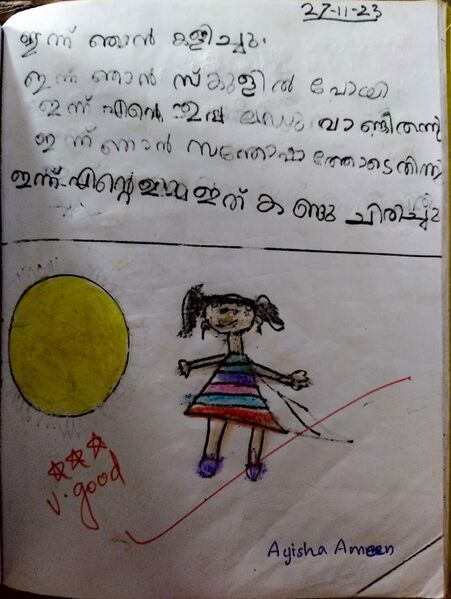 27-11-23
ഇന്ന് ഞാൻ കളിച്ചു.
ഇന്ന് ഞാൻ സ്കൂളിൽ പോയി
ഇന്ന് എന്റെ ഉപ്പ ലഡു വാങ്ങിതന്നു
ഇന്ന് ഞാൻ സന്തോഷത്തോടെ തിന്നു
ഇന്ന് എന്റെ ഉമ്മ ഇത് കണ്ടു ചിരിച്ചു
v. good
Ayisha Ameen